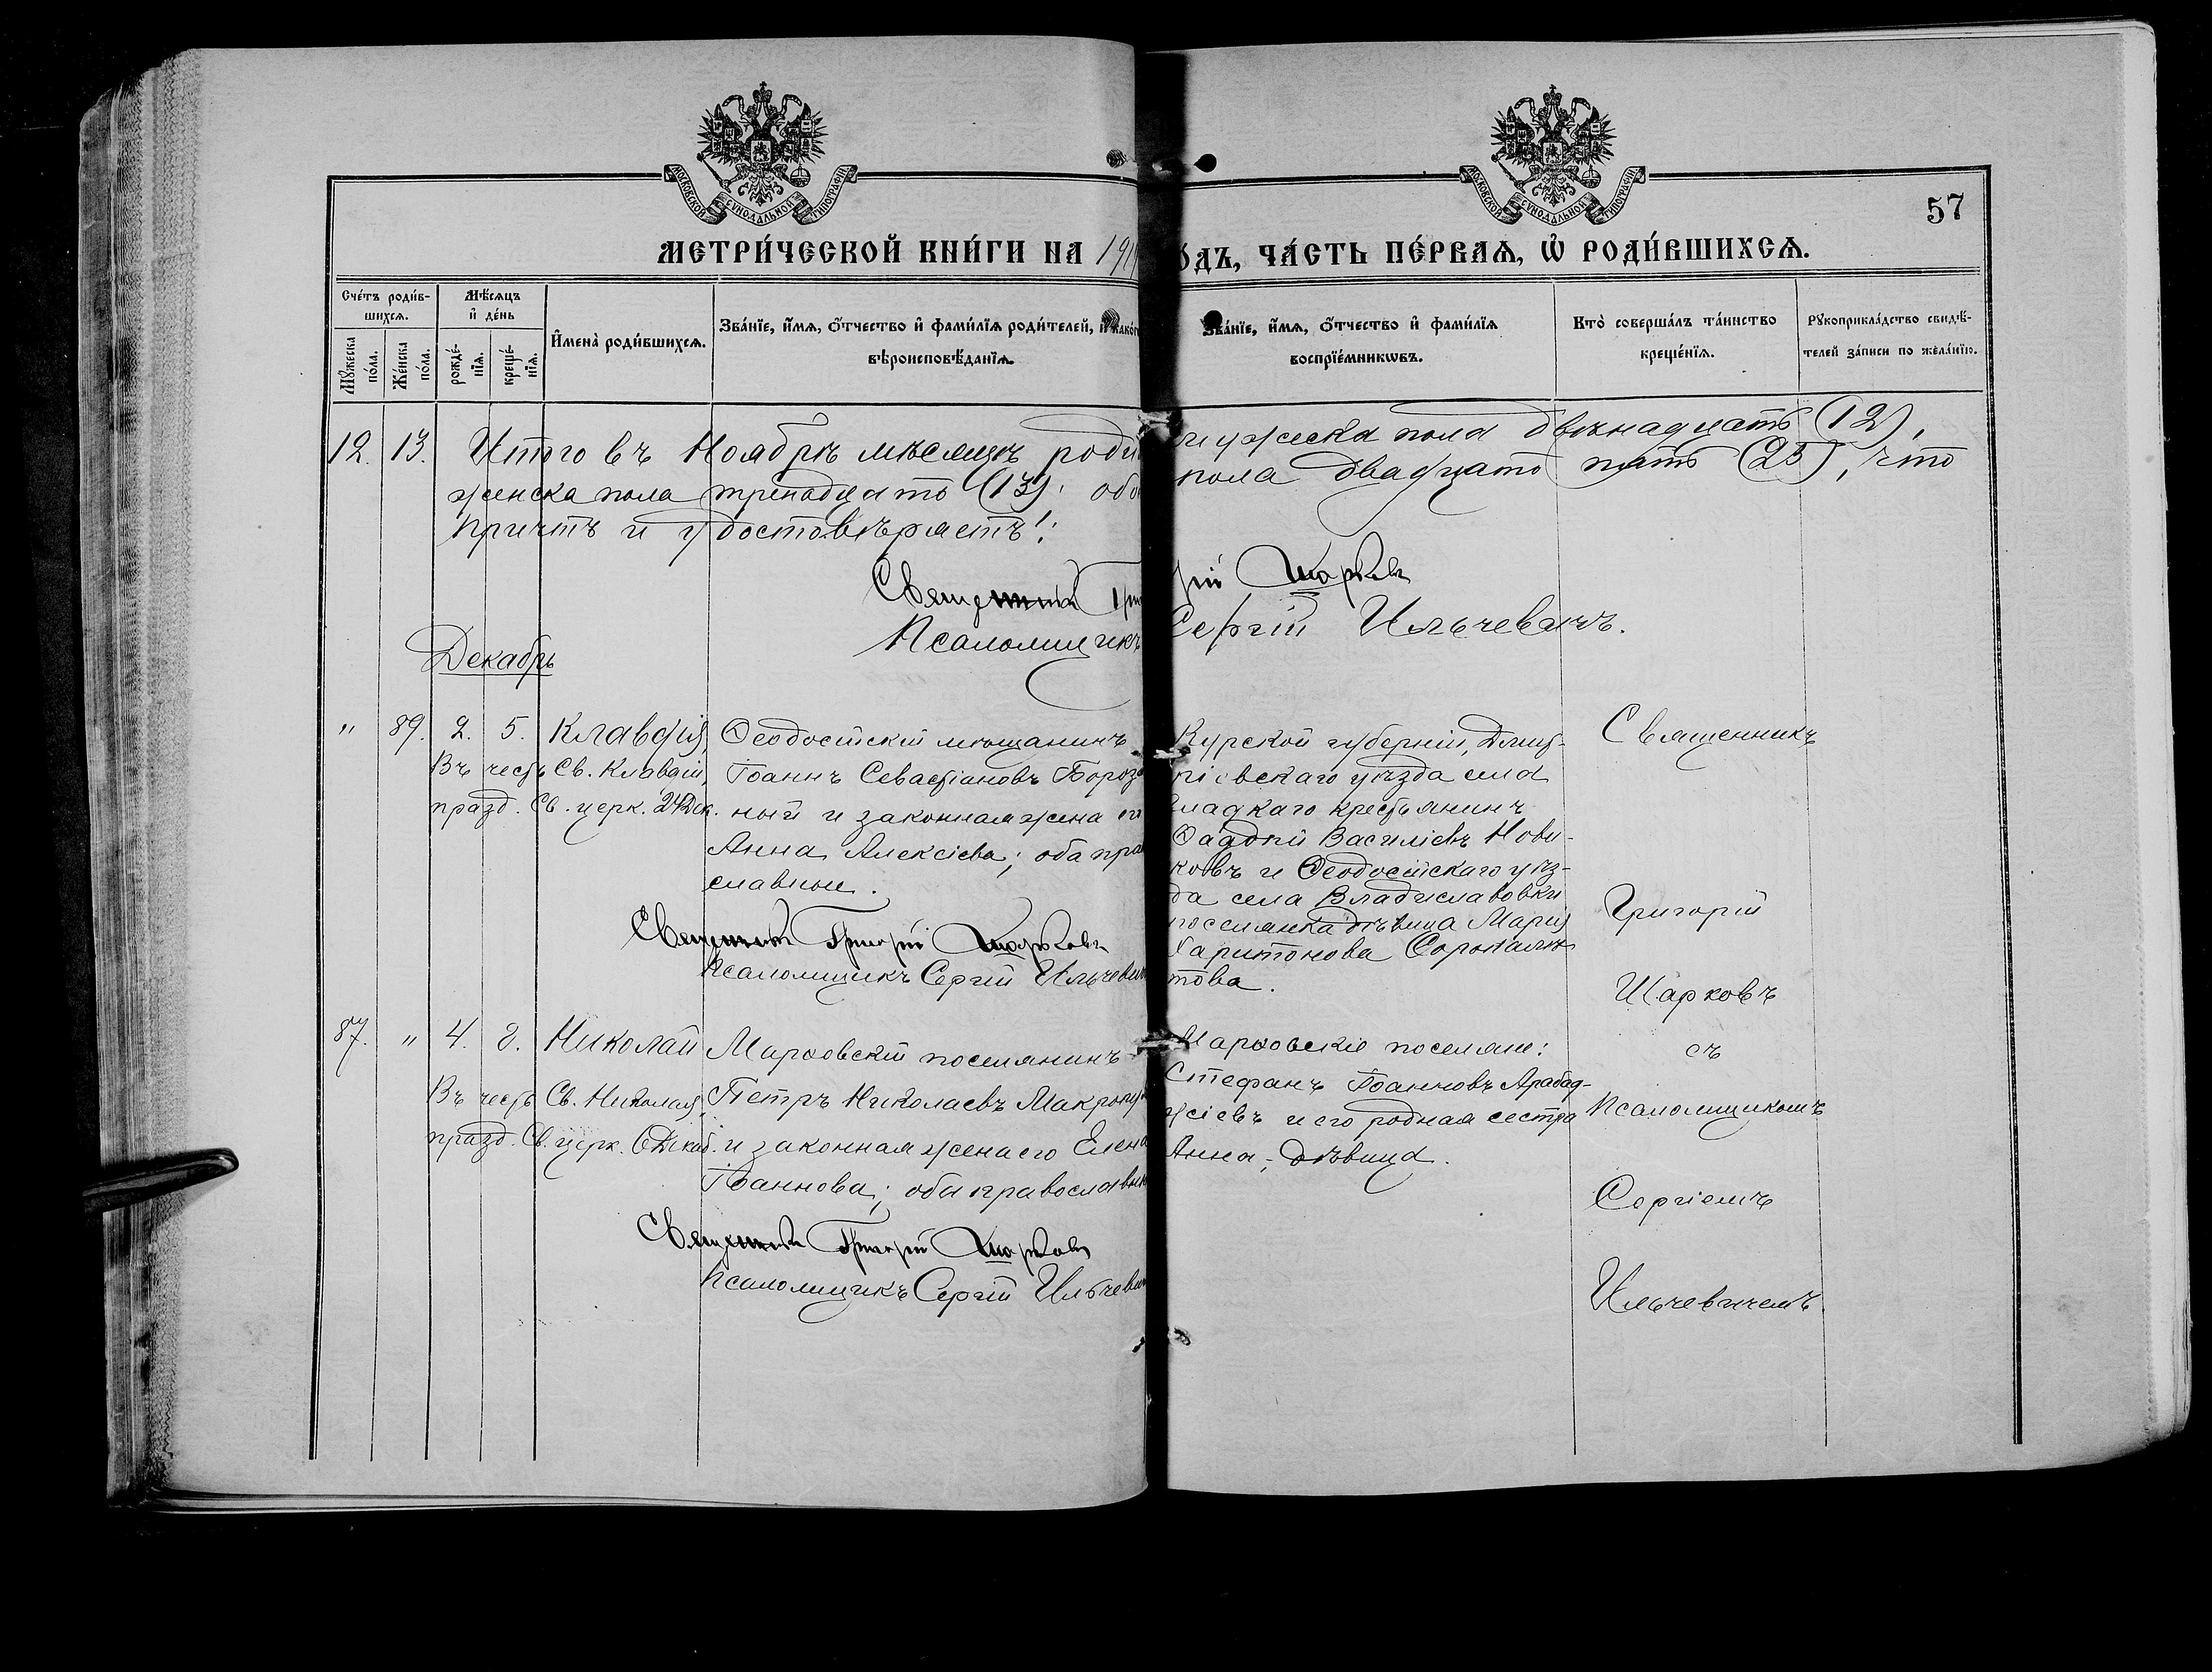 МОСКОВСКОЙ СѴНОДАЛЬНОЙ ТИПОГРАФІИ
МОСКОВСКОЙ СѴНОДАЛЬНОЙ ТИПОГРАФІИ
57
МЕТРИ́ЧЕСКОЙ КНИ́ГИ НА 191
О́ДЪ, ЧА́СТЬ ПЕ́РВАѦ, Ѡ҆ РОДИ́ВШИХСѦ.
Сче́тъ роди́в-
шихсѧ.
Мꙋ́жеска по́ла.
Же́нска по́ла.
Мѣ́сѧцъ
и҆ де́нь
рожде́-
нїѧ.
креще́-
нїѧ.
И҆мена̀ роди́вшихсѧ.
Зва́нїе, и҆́мѧ, ѻ҆́тчество и҆ фами́лїѧ роди́телей, и҆ како́г
вѣроисповѣ́данїѧ.
Зва́нїе, и҆́мѧ, ѻ҆́тчество и҆ фами́лїѧ
воспрїе́мникѡвъ.
Кто̀ соверша́лъ та́инство
креще́нїѧ.
Рꙋкоприкла́дство свидѣ́-
телей за́писи по жела́нїю.
12. 13. Итого въ Ноябрѣ мѣсяцѣ роди мужеска пола двѣнадцать (12),
женска пола тринадцать (13); обо пола двадцать пять (25), что
причтъ и удостовѣряетъ!:
Священникъ Гри рій Шарковъ
Псаломщикъ Сергій Ильчевичъ.
Декабрь
" 89. 2. 5. Клавдія,
Въ честь Св. Клавдіи,
празд. Св. церк. 24 Дек.
Ѳеодосійскій мѣщанинъ
Іоаннъ Севастіановъ Бороз
ный и законная жена ег
Анна Алексіева; оба пра
славные.
Священникъ Григорій Шарковъ
Псаломщикъ Сергій Ильчевич
Курской губерніи, Дмит-
ріевскаго уѣзда села
Гладкаго крестьянинъ
Ѳаддей Василіевъ Нови-
ковъ и Ѳеодосійскаго уѣз-
да села Владиславовки
поселянка дѣвица Марія
Харитонова Соропалж
това.
Священникъ
Григорій
Шарковъ
съ
Псаломщикомъ
Сергіемъ
Ильчевичемъ.
87. " 4. 8. Николай
Въ честь Св. Николая,
празд. Св. церк. 6 Декаб.
Марѳовскій поселянинъ
Петръ Николаевъ Макропу
и законная жена его Елена
Іоаннова; оба православн
Священникъ Григорій Шарковъ
Псаломщикъ Сергій Ильчевич
Марѳовскіе поселяне:
Стефанъ Іоанновъ Арабад-
жіевъ и его родная сестра
Анна, дѣвица.